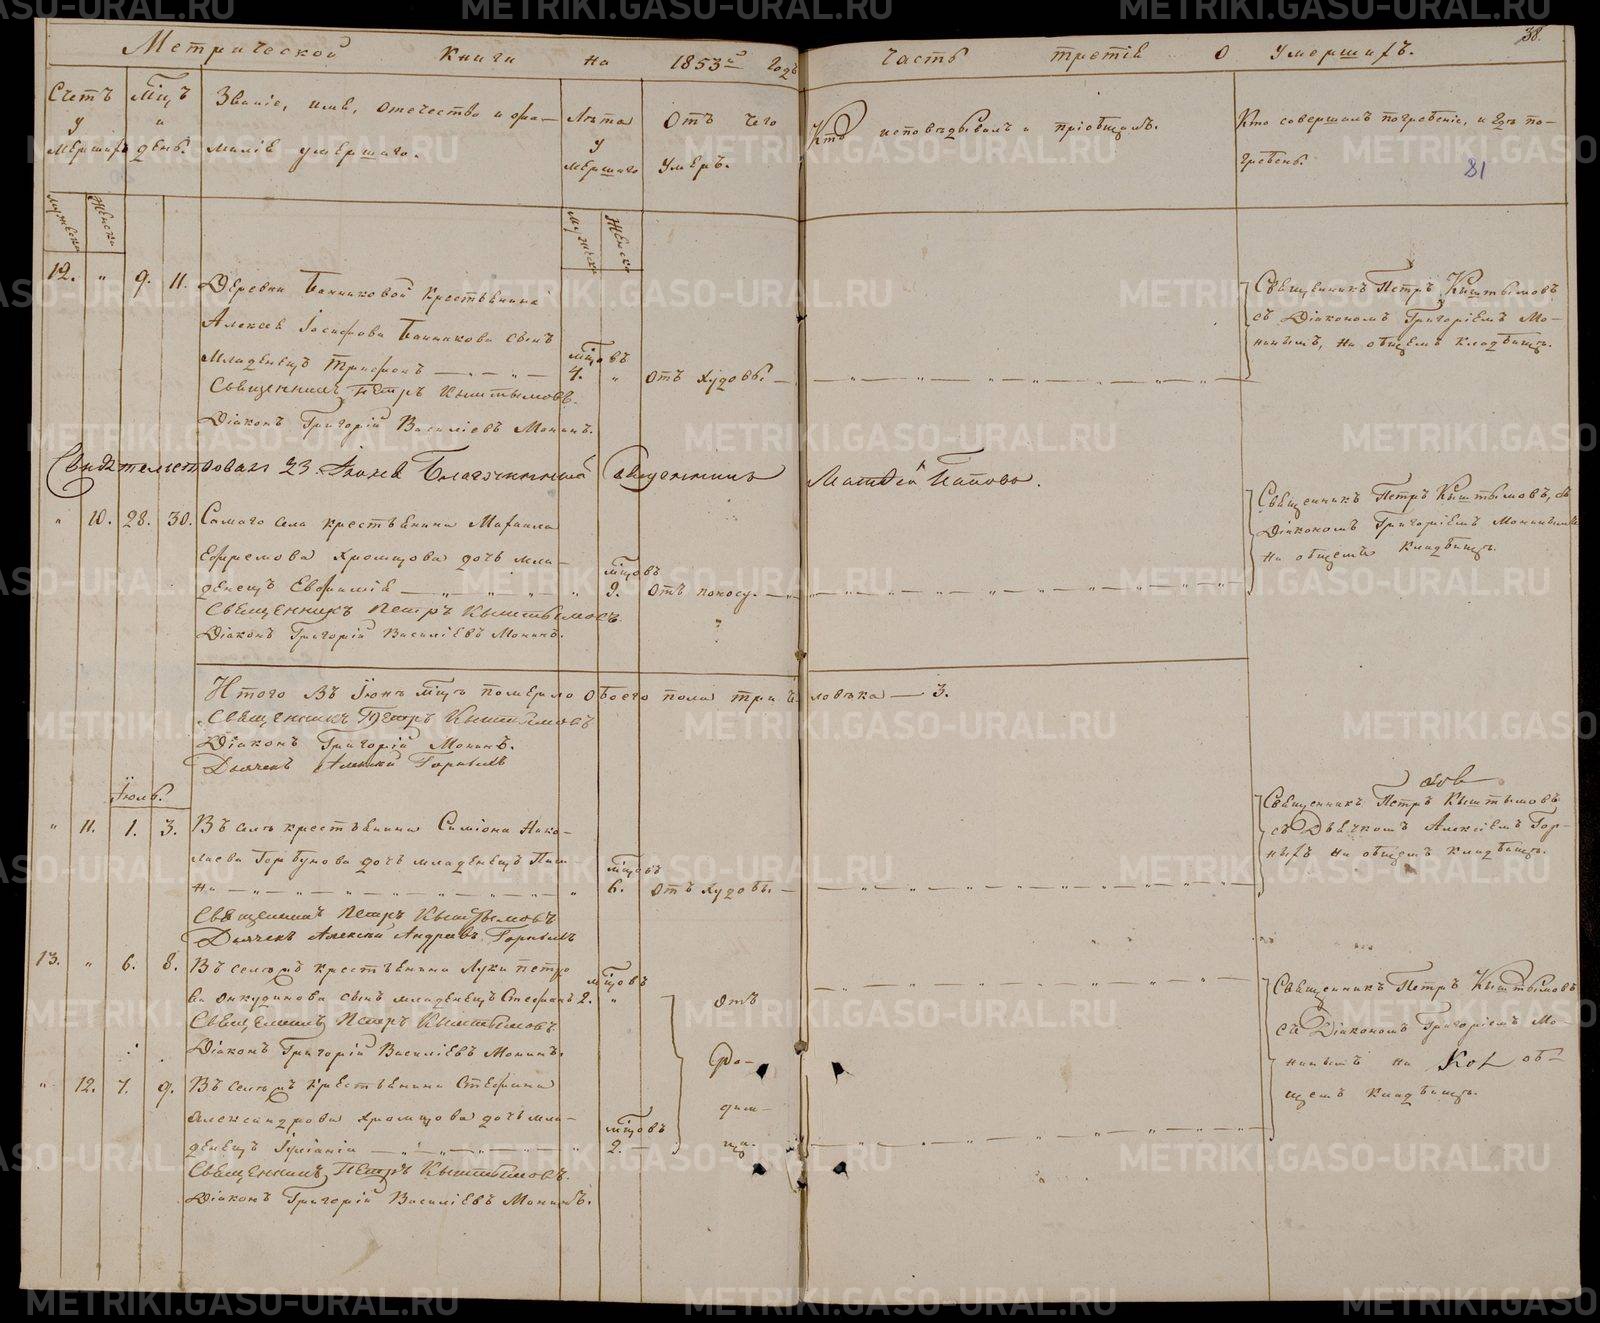 Метрической книги на 1853й годъ часть третія о умершихъ.
38.
Счетъ умершихъ
Мцъ и день.
Званіе, имя, отечество и фамилія умершаго.
Лѣта умершаго
Отъ чего умеръ.
Кто исповѣдывалъ и пріобщалъ.
Кто совершалъ погребеніе, и гдѣ погребены
81
Мужеска
Женска
Мужеска
Женска
12. " 9. 11. Деревни Банниковой крестьянина
Алексѣя Іосифова Банникова сынъ
младенецъ Трифонъ мцовъ 4. " отъ худобы
Священникъ Петръ Кыштымовъ.
Діаконъ Григорій Василіевъ Монинъ.
Священникъ Петръ Кыштымовъ
съ Діакономъ Григоріемъ Мо-
нинымъ, на общемъ кладбищѣ.
Свидѣтельствовалъ 23. Іюня Благочинный Священникъ Матвѣй Поповъ.
" 10. 28. 30. Самого села крестьянина Михаила
Ефремова Хромцова дочь мла-
денецъ Евфимія " мцовъ 9. отъ поносу.
Священникъ Петръ Кыштымовъ.
Діаконъ Григорій Василіевъ Монинъ.
Священникъ Петръ Кыштымовъ, съ
Діакономъ Григоріемъ Мониным
на общемъ кладбищѣ.
Итого въ Іюнѣ мцѣ померло обоего пола три человѣка — 3.
Священникъ Петръ Кыштымовъ
Діаконъ Григорій Монинъ.
Дьячекъ Алексій Горныхъ
Іюль.
" 11. 1. 3. Въ селѣ крестьянина Симіона Нико-
лаева Горбунова дочь младенецъ
на " мцовъ 6. отъ худобы
Священникъ Петръ Кыштымовъ
Дьячекъ Алексій Андреевъ Горныхъ
Священникъ Петръ Кыштымовъ
съ Дьячкомъ Алексіемъ Гор-
ныхъ на общемъ кладбищѣ.
13. " 6. 8. Въ селѣ крестьянина Луки Петро
ва Анкудинова сынъ младенецъ Стефанъ мцовъ 2. "
Священникъ Петръ Кыштымовъ.
Діаконъ Григорій Василіевъ Монинъ.
отъ
Ро-
дим-
ца.
Священникъ Петръ Кыштымовъ
съ Діакономъ Григоріемъ Мо-
нинымъ на об-
щемъ кладбищѣ.
" 12. 7. 9. Въ селѣ крестьянина Стефана
Александрова Хромцова дочь мла-
денецъ Іуліанія " мцовъ 2.
Священникъ Петръ Кыштымовъ.
Діаконъ Григорій Василіевъ Монинъ.
METRIKI.GASO-URAL.RU